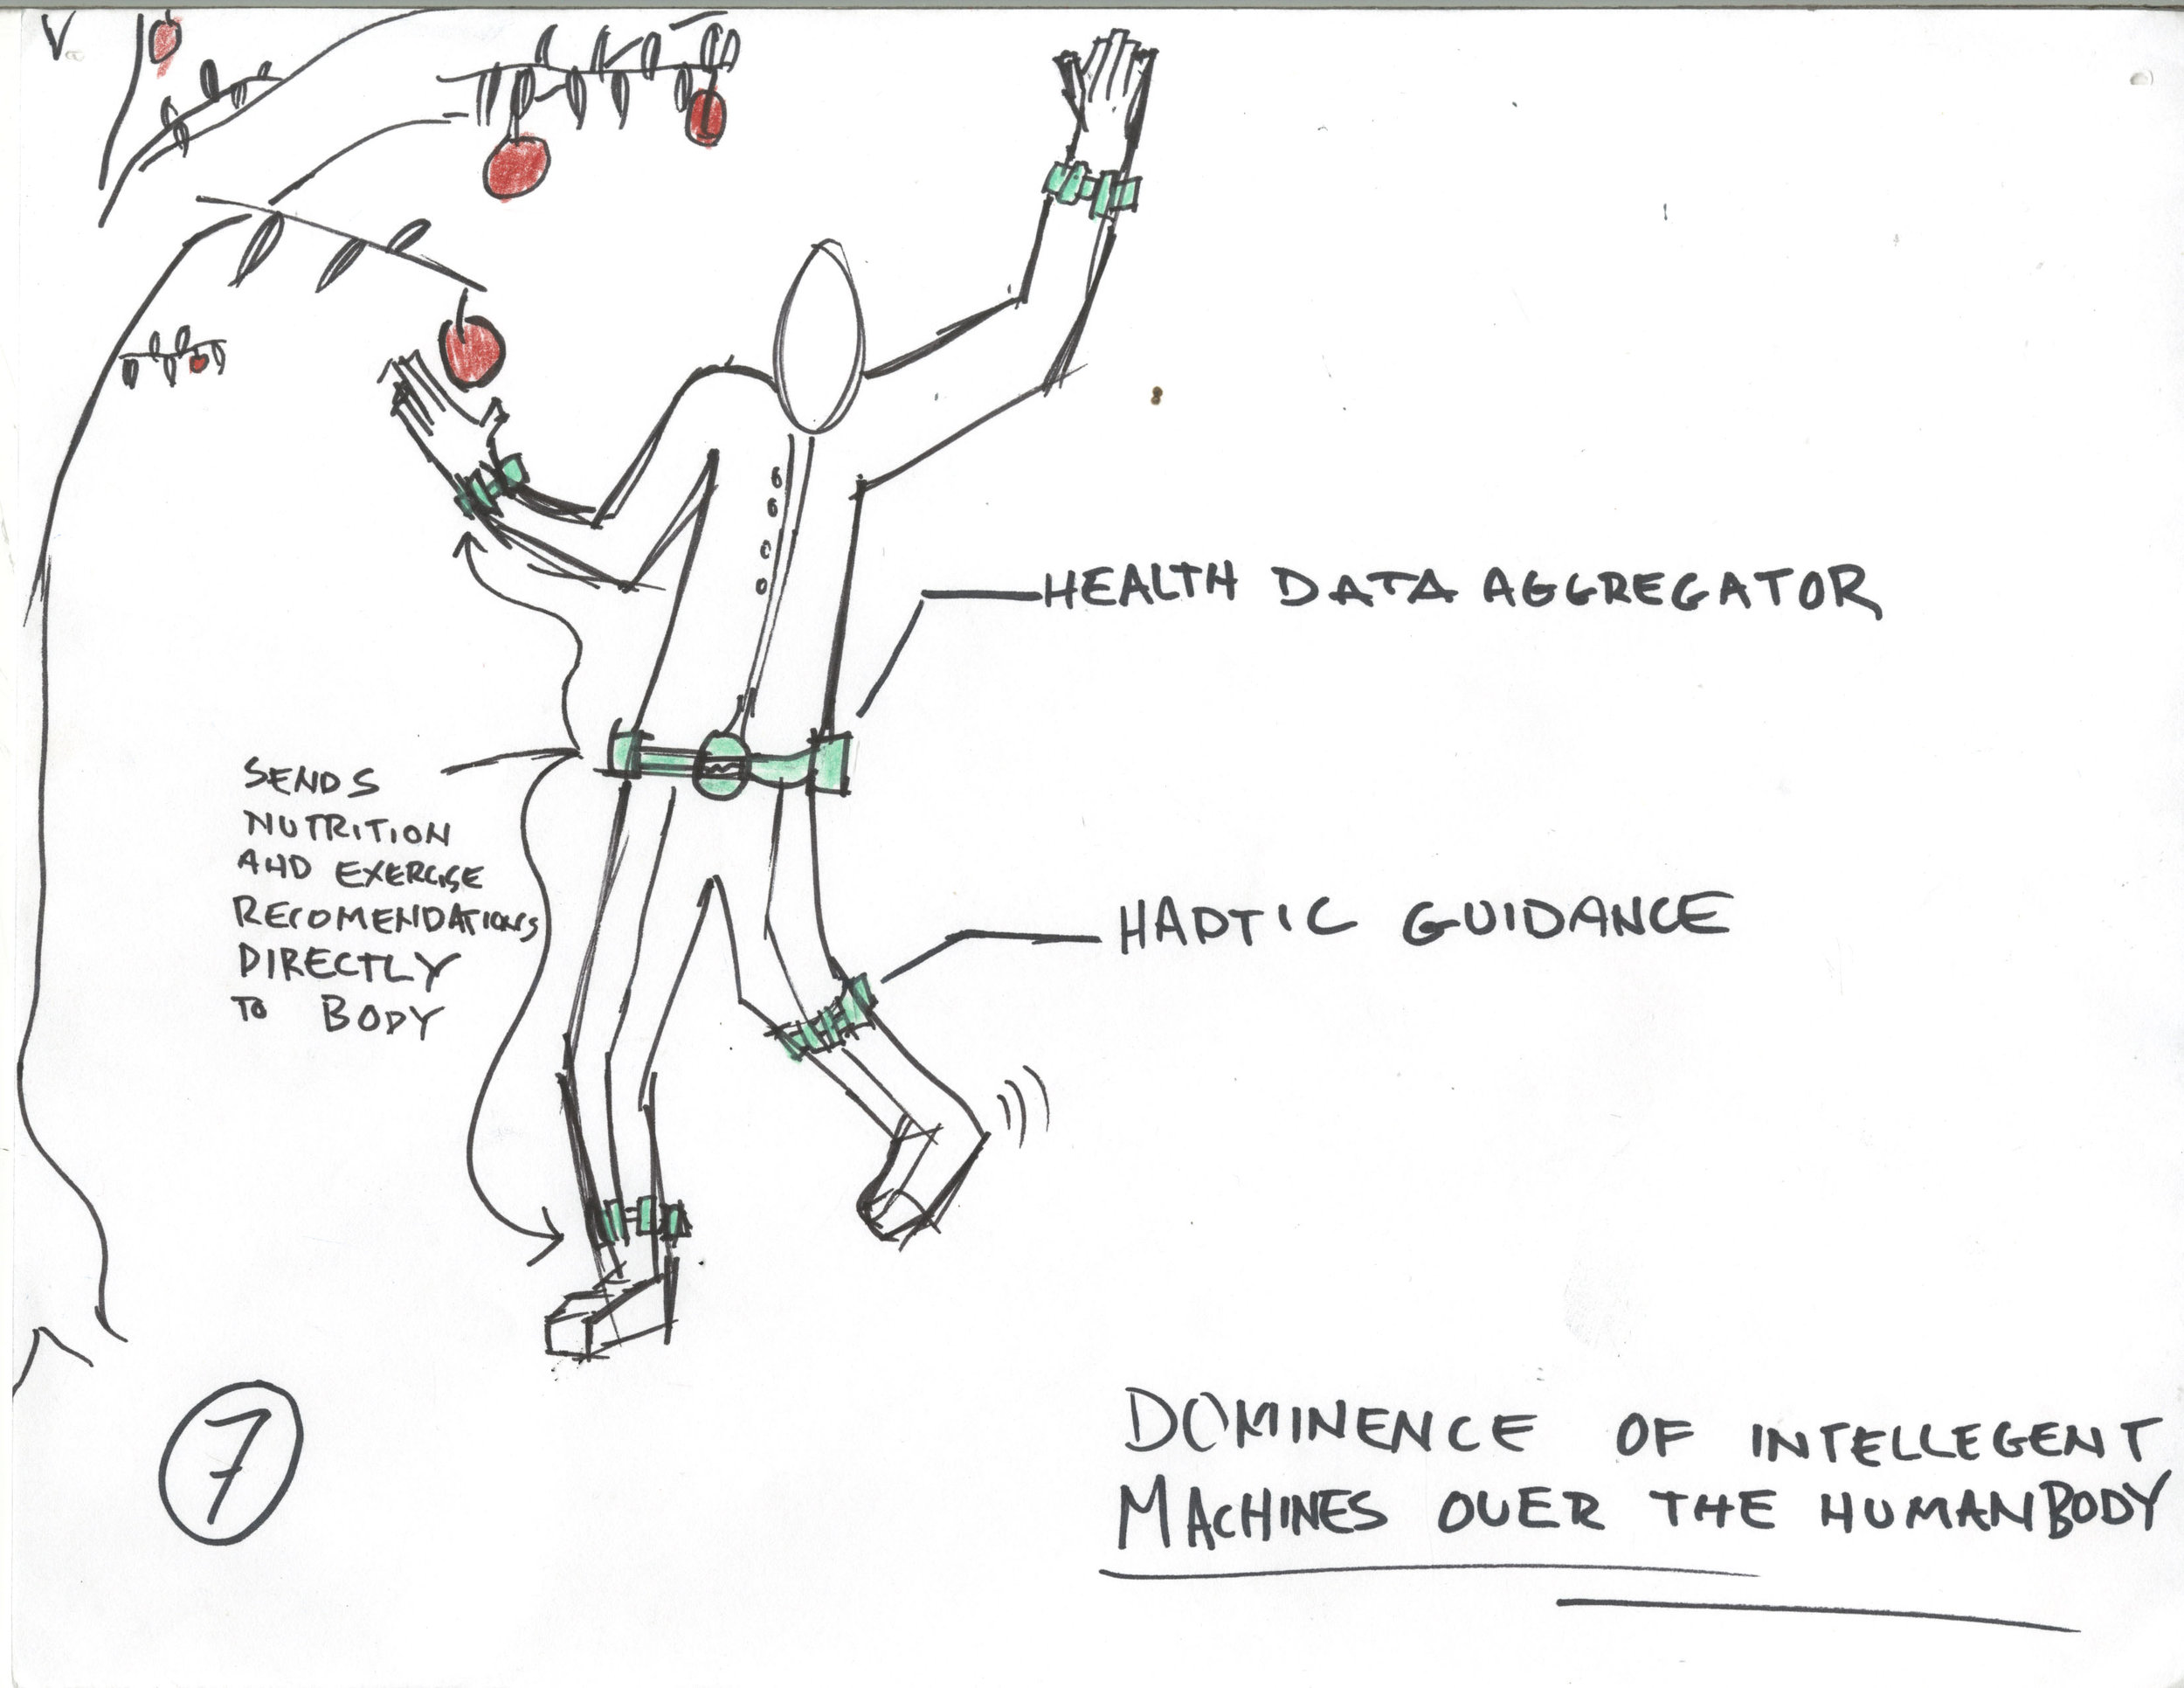 HEALTH DATA AGGREGATOR
SENDS
NUTRITION
AND EXERCISE
RECOMENDATIONS
DIRECTLY
TO BODY
HAPTIC GUIDANCE
7
DOMINENCE OF INTELLEGENT
MACHINES OVER THE HUMAN BODY